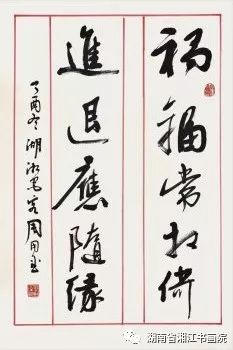 禍福常相倚
進退應隨緣
丁酉冬湖湘墨客周用金
湖南省湘江书画院